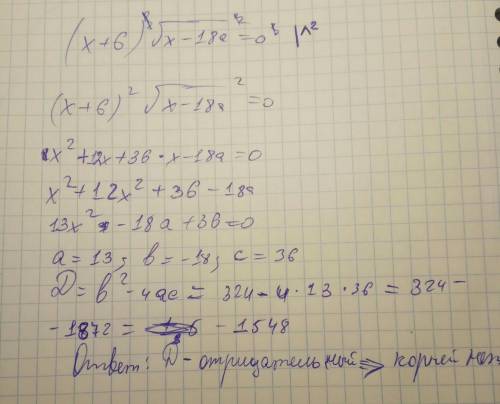 (x+6)² √(x-18a)² = 0² |^2
(x+6)² √(x-18a)² = 0
x² + 12x + 36 · x - 18a = 0
x² + 12x² + 36 - 18a
13x² - 18a + 36 = 0
a = 13; b = -18; c = 36
D = b² - 4ac = 324 - 4 · 13 · 36 = 324 -
- 1872 = - 1548
Ответ: D - отрицательный => корней нет